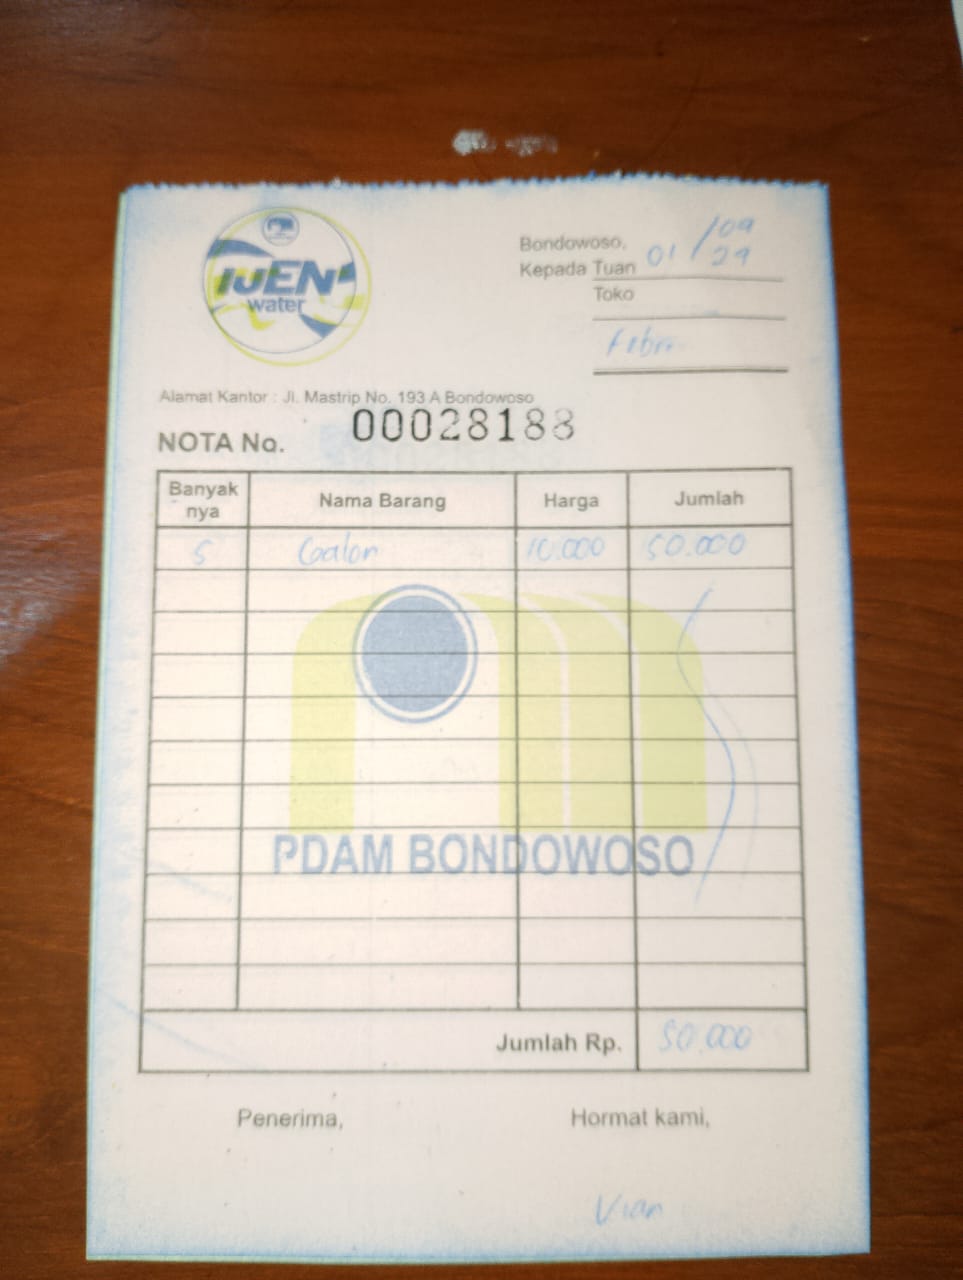 IJEN
water
Bondowoso, 01/09
Kepada Tuan
Toko
Febri
Alamat Kantor : Jl. Mastrip No. 193 A Bondowoso
NOTA No. 00028188
Banyak nya Nama Barang Harga Jumlah
5 Galon 10.000 50.000
PDAM BONDOWOSO
Jumlah Rp. 50.000
Penerima, Hormat kami,
Vian